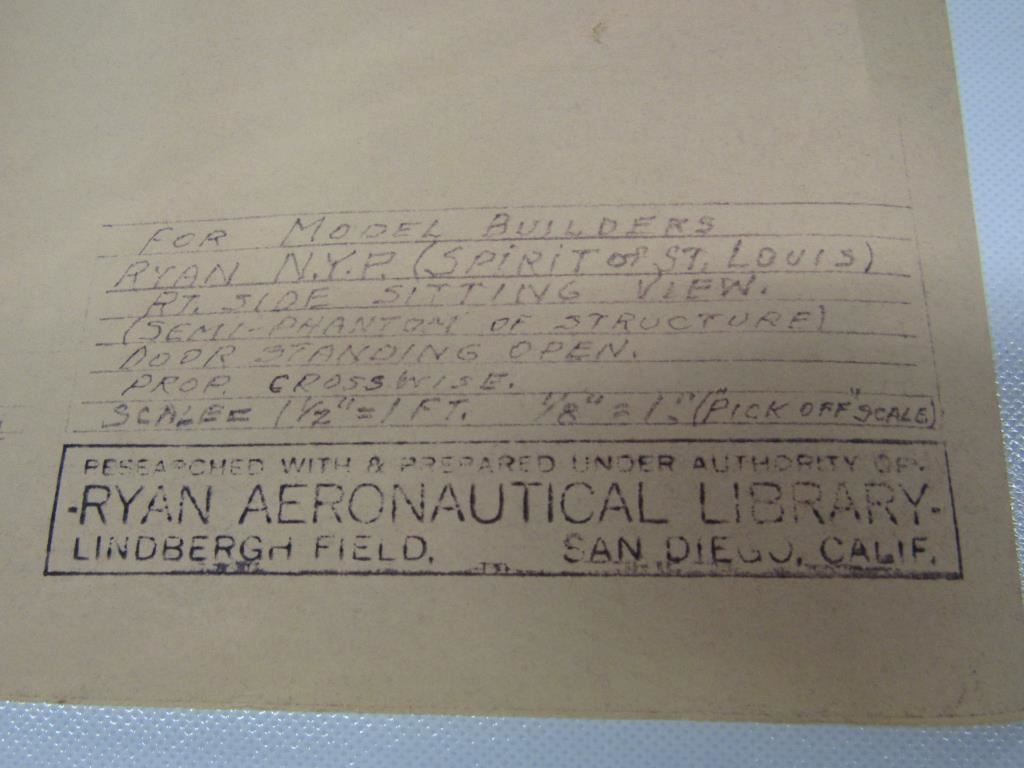 FOR MODEL BUILDERS
RYAN N.Y.P. (SPIRIT OF ST. LOUIS)
RT. SIDE SITTING VIEW.
(SEMI-PHANTOM OF STRUCTURE)
DOOR STANDING OPEN.
PROP. CROSSWISE.
SCALE = 1 1/2" = 1 FT. 1/8" = 1" ("PICK OFF" SCALE)
RESEARCHED WITH & PREPARED UNDER AUTHORITY OF-
-RYAN AERONAUTICAL LIBRARY-
LINDBERGH FIELD, SAN DIEGO, CALIF.